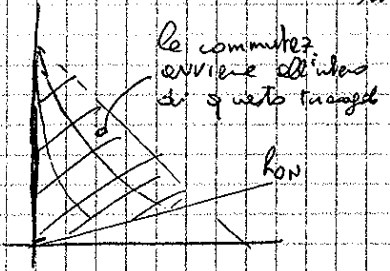 le commutaz.
avviene all'interno
di questo triangolo
RON